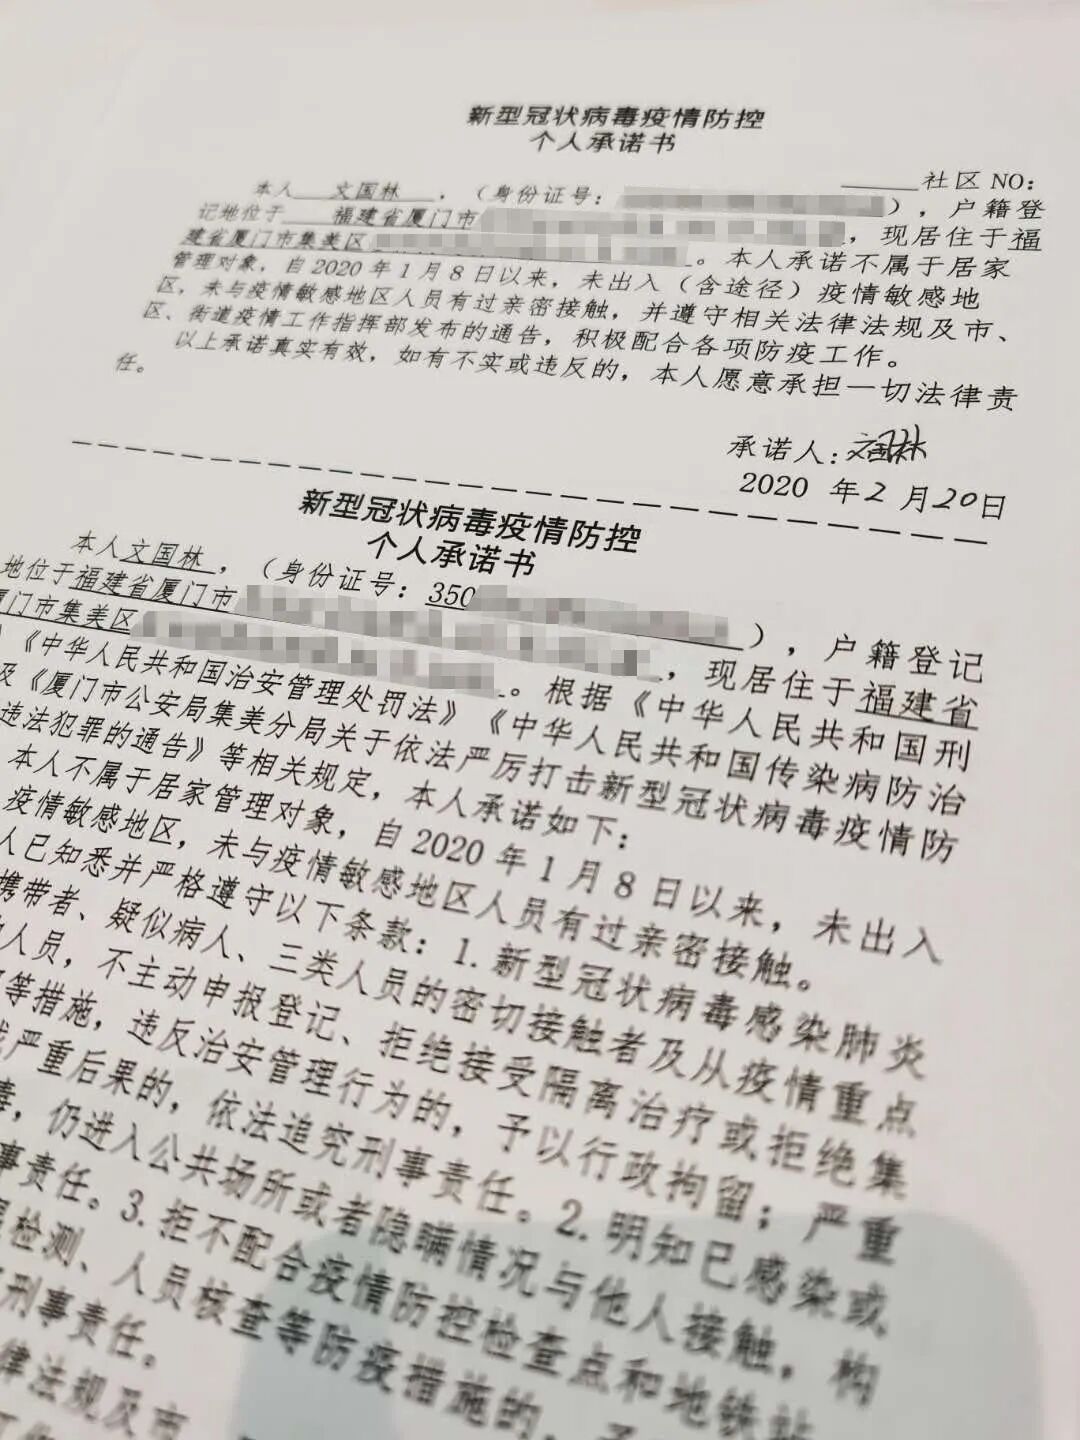 新型冠状病毒疫情防控
个人承诺书
社区 NO:
本人 文国林 ，（身份证号：），户籍登
记地位于 福建省厦门市，现居住于福
建省厦门市集美区。本人承诺不属于居家
管理对象，自 2020 年 1 月 8 日以来，未出入（含途径）疫情敏感地
区，未与疫情敏感地区人员有过亲密接触，并遵守相关法律法规及市、
区、街道疫情工作指挥部发布的通告，积极配合各项防疫工作。
以上承诺真实有效，如有不实或违反的，本人愿意承担一切法律责
任。
承诺人：文国林
2020 年 2 月 20 日
新型冠状病毒疫情防控
个人承诺书
本人文国林，（身份证号：350），户籍登记
地位于福建省厦门市，现居住于福建省
厦门市集美区。根据《中华人民共和国刑
《中华人民共和国治安管理处罚法》《中华人民共和国传染病防治
及《厦门市公安局集美分局关于依法严厉打击新型冠状病毒疫情防
违法犯罪的通告》等相关规定，本人承诺如下：
本人不属于居家管理对象，自 2020 年 1 月 8 日以来，未出入
疫情敏感地区，未与疫情敏感地区人员有过亲密接触。
人已知悉并严格遵守以下条款：1. 新型冠状病毒感染肺炎
携带者、疑似病人、三类人员的密切接触者及从疫情重点
人员，不主动申报登记、拒绝接受隔离治疗或拒绝集
等措施，违反治安管理行为的，予以行政拘留；严重
严重后果的，依法追究刑事责任。2. 明知已感染或
毒，仍进入公共场所或者隐瞒情况与他人接触，构
事责任。3. 拒不配合疫情防控检查点和地铁站
检测、人员核查等防疫措施的，
刑事责任。
律法规及市